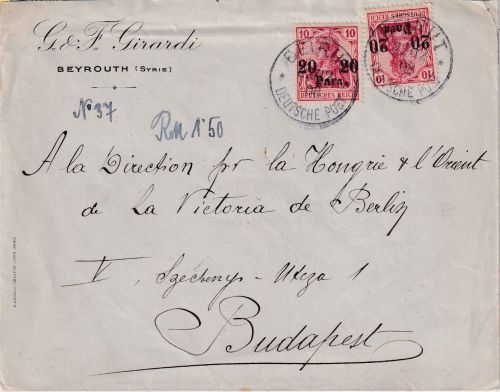 G. & F. Girardi
BEYROUTH (SYRIE)
No 37
RM 1.50
10 10
20 20
Para
DEUTSCHES REICH
10 10
20 20
Para
DEUTSCHES REICH
DEUTSCHE POST
DEUTSCHE POST
A la Direction pr la Hongrie & l'Orient
de La Victoria de Berlin
V Széchenyi-Utcza 1
Budapest